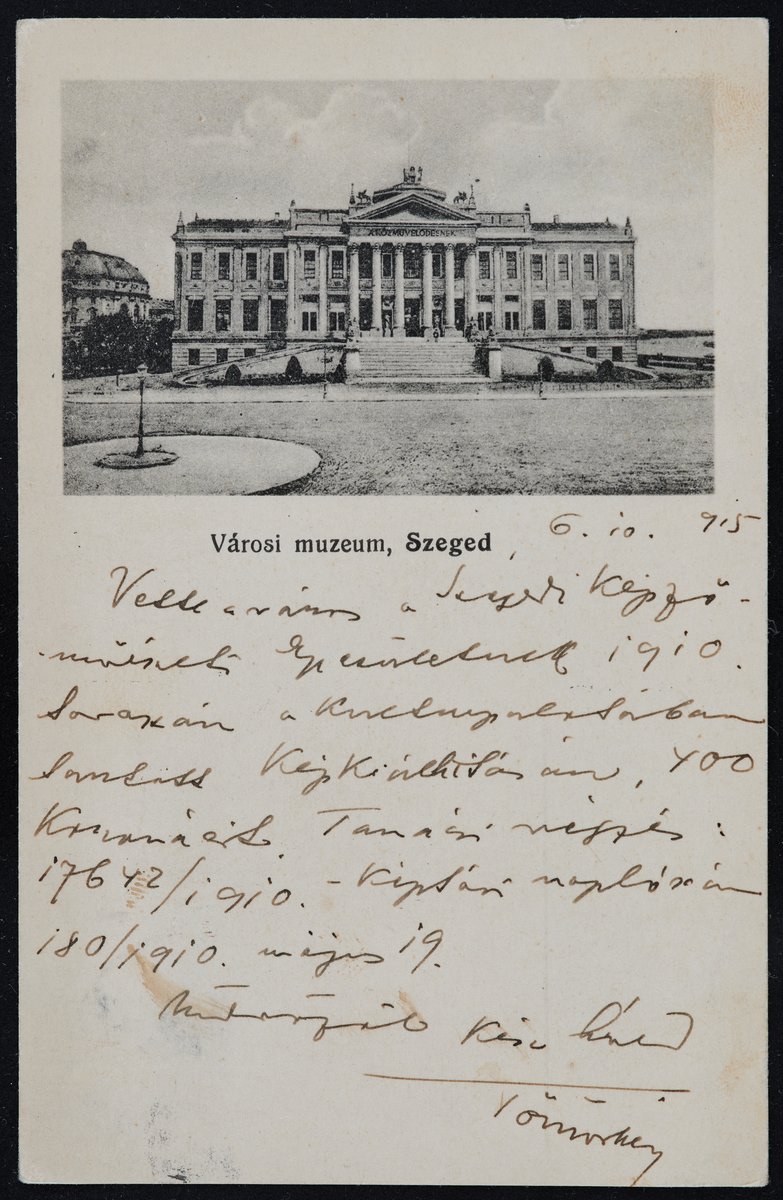 A KÖZMŰVELŐDÉSNEK
Városi muzeum, Szeged
6. 10. 915
Vette a város a Szegedi Képző-
művészeti Egyesületnek 1910.
tavaszán a kultúrpalotában
tartott Képkiállításán, 400
Koronáért. Tanácsi végzés:
17642/1910. - Képtári naplószám
180/1910. május 19.
Kész híved
Tömörkény